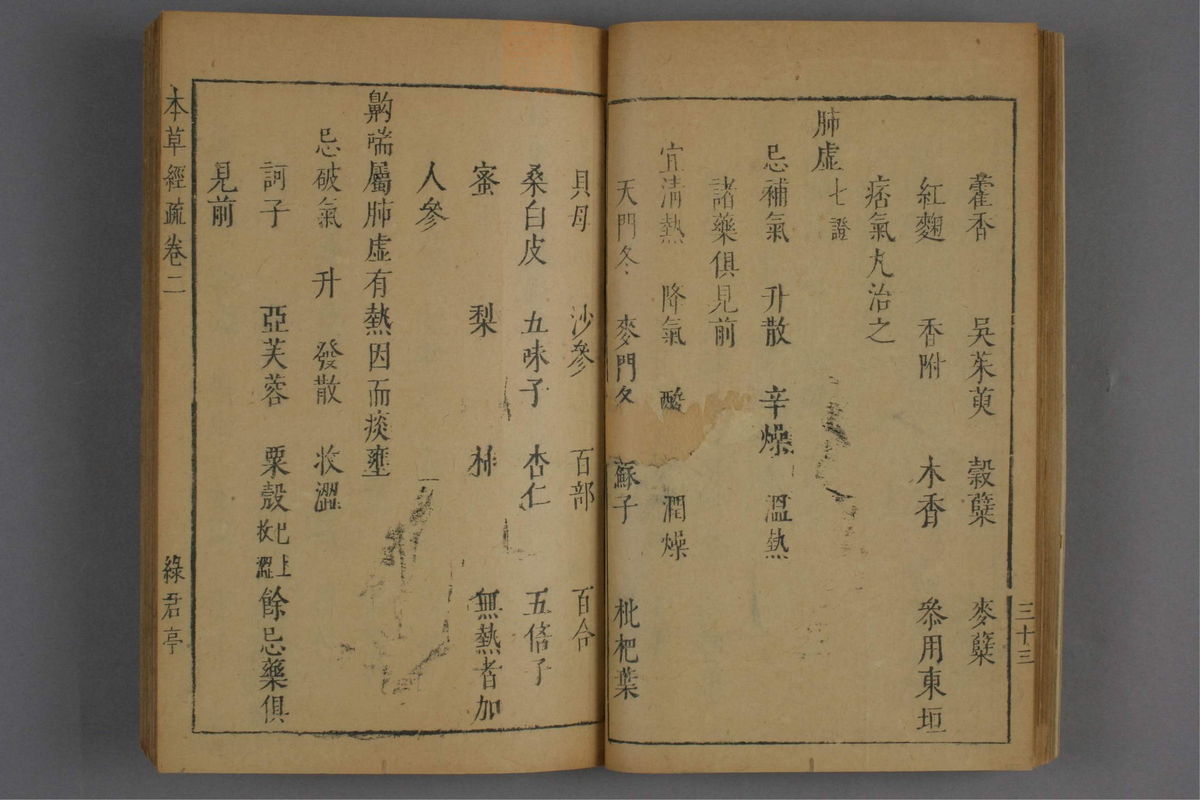 藿香 吳茱萸 穀蘖 麥蘖
紅麴 香附 木香 叅用東垣
痞氣丸治之
肺虛七證
忌補氣 升散 辛燥 溫熱
諸藥俱見前
宜清熱 降氣 酸 潤燥
天門冬 麥門冬 蘇子 枇杷葉
三十三
貝母 沙參 百部 百合
桑白皮 五味子 杏仁 五倍子
蜜 梨 柿 無熱者加
人參
齁喘屬肺虛有熱因而痰壅
忌破氣 升 發散 收澀
訶子 亞芙蓉 粟殼已上收澀餘忌藥俱
見前
本草經疏卷二 綠君亭